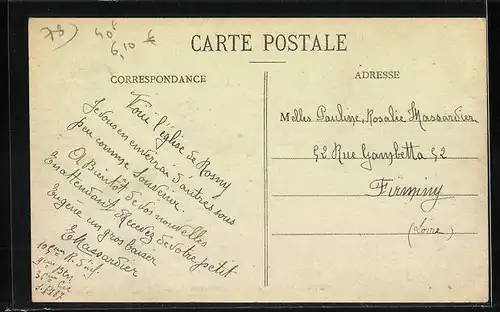 78)
40f
6,10 €
CARTE POSTALE
CORRESPONDANCE
ADRESSE
Voici l'église de Rosny
Je vous en enverrai d'autres sous
peu comme Souvenir.
A Bientôt de vos nouvelles
En attendant Recevez de votre petit
Eugène un gros baiser
E Massardier
Melles Pauline, Rosalie Massardier
52 Rue Gambetta 52
Firminy
(Loire)